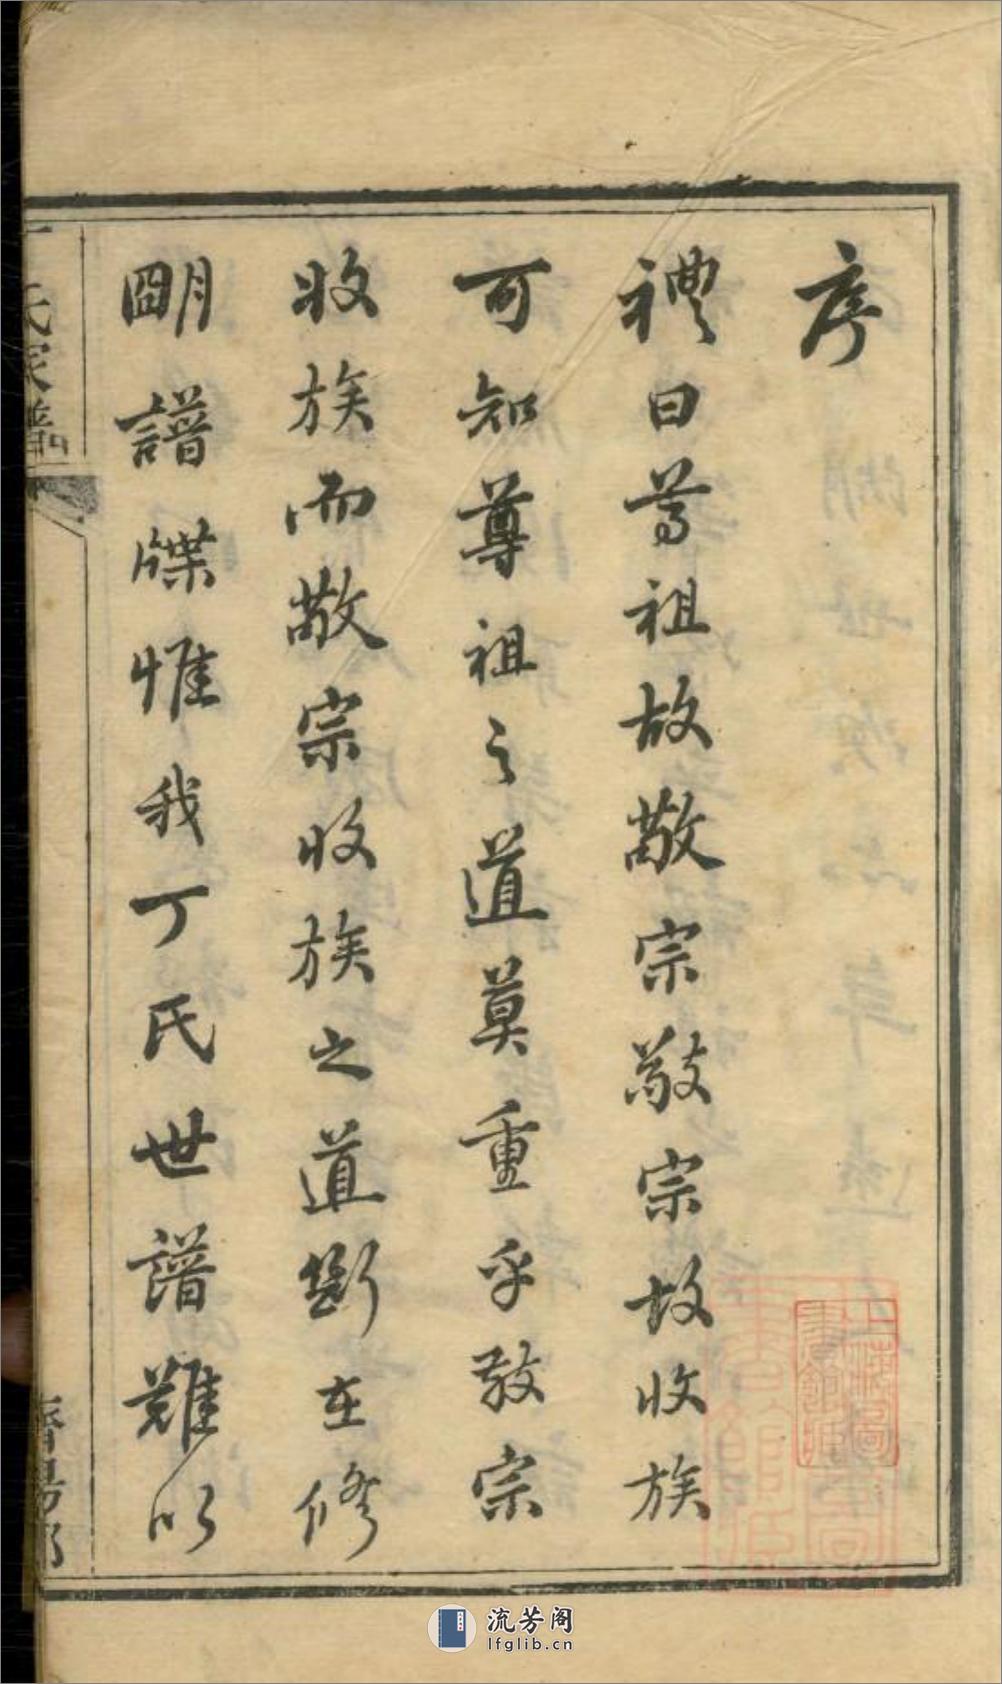 序
禮曰尊祖故敬宗敬宗故收族
可知尊祖之道莫重乎敬宗
收族而敬宗收族之道斷在修
朙譜牒惟我丁氏世譜難以
丁氏家譜
濟陽郡
上海圖書館藏
流芳阁
lfglib.cn